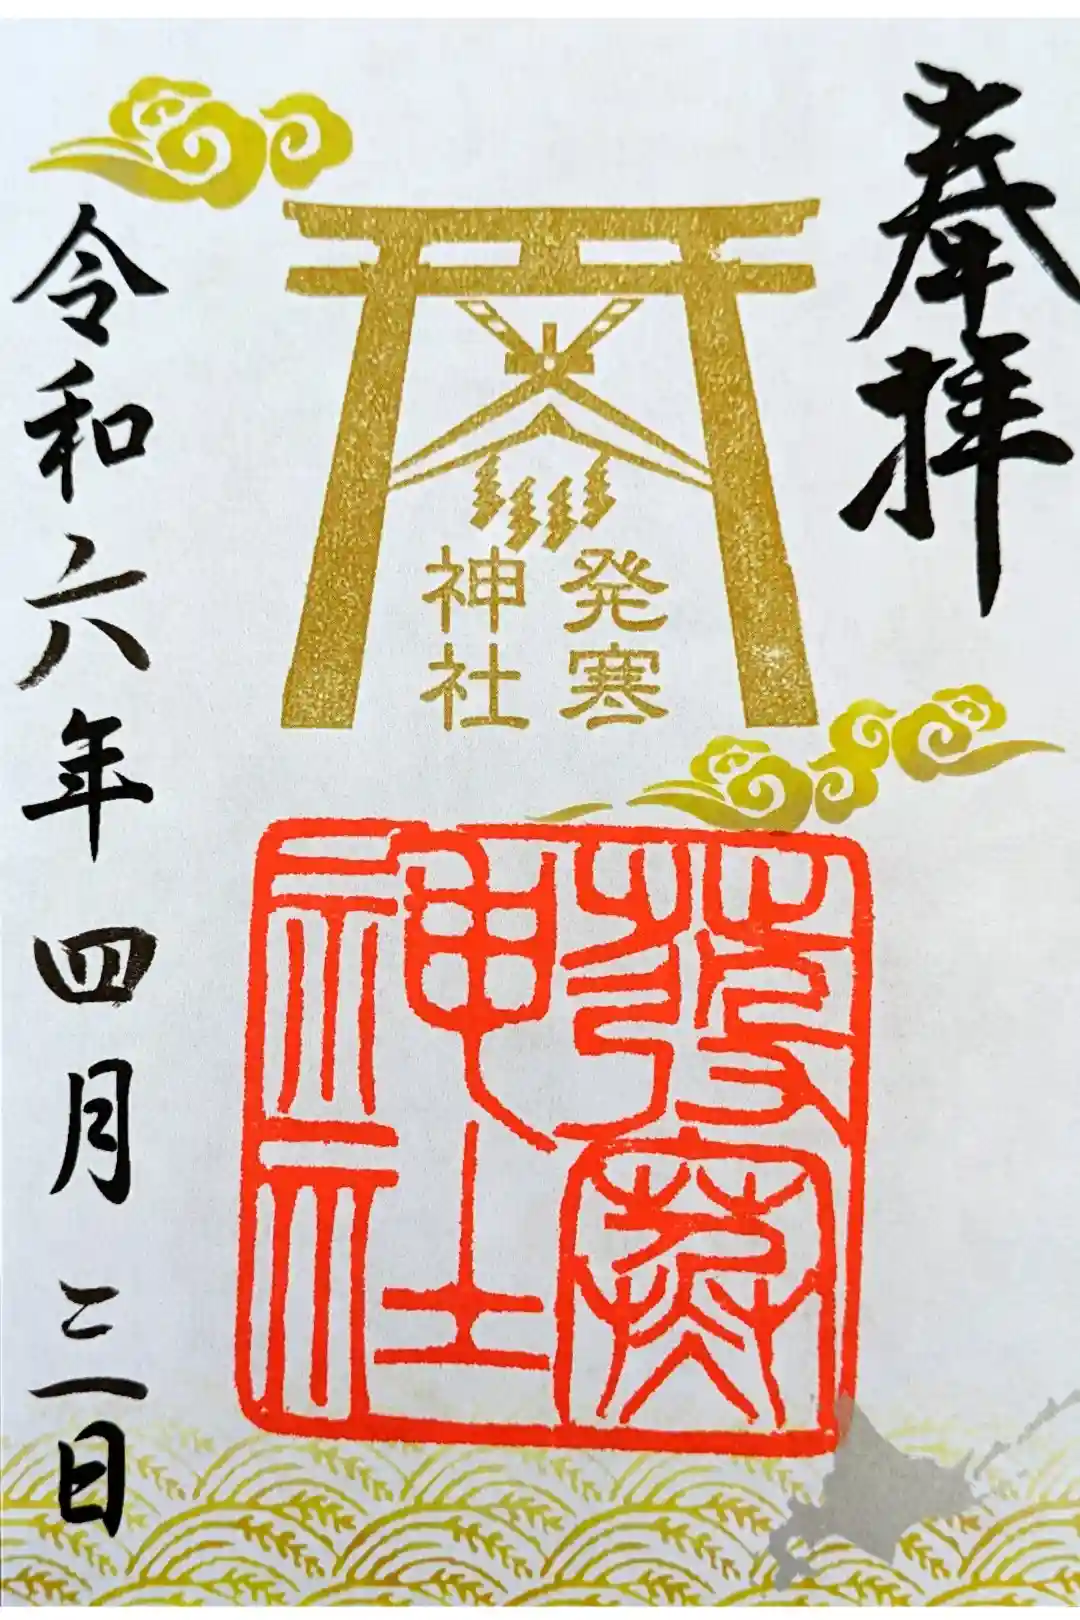 奉拝
発寒
神社
發寒
神社
令和六年四月三日